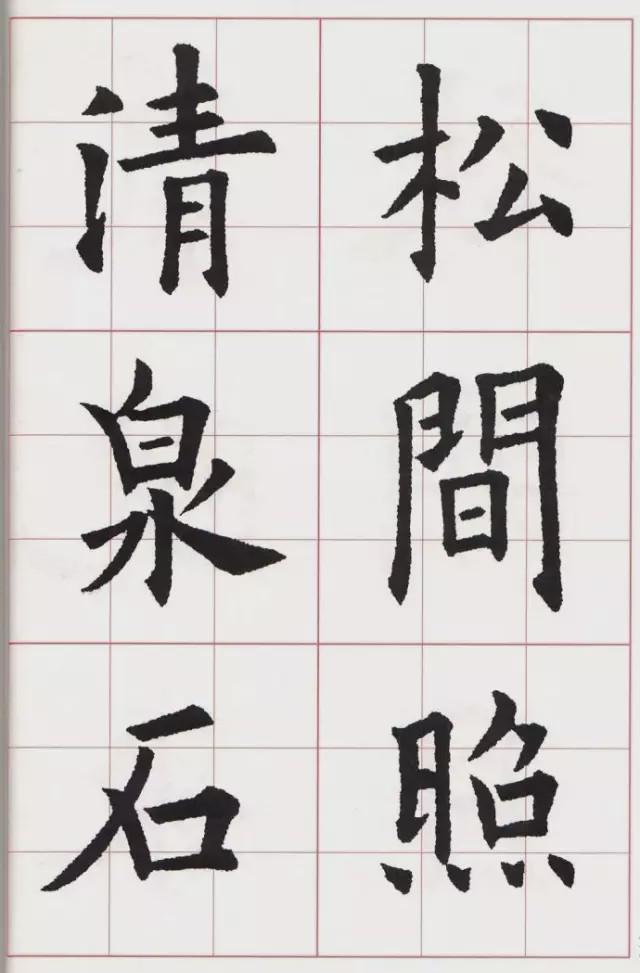 松間照
清泉石